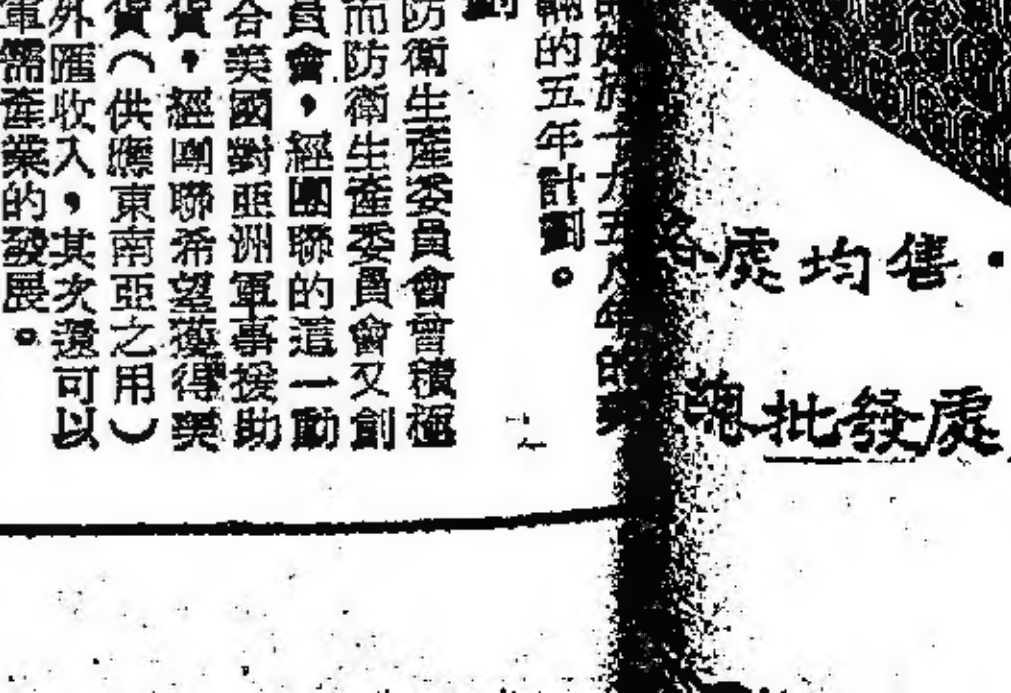 一九五八年的
輛的五年計劃。
劃
防衛生產委員會曾積極
而防衛生產委員會又創
員會，經團聯的這一動
合美國對亞洲軍事援助
貨，經團聯希望獲得美
貨（供應東南亞之用）
外匯收入，其次還可以
軍需產業的發展。
各處均售·
總批發處